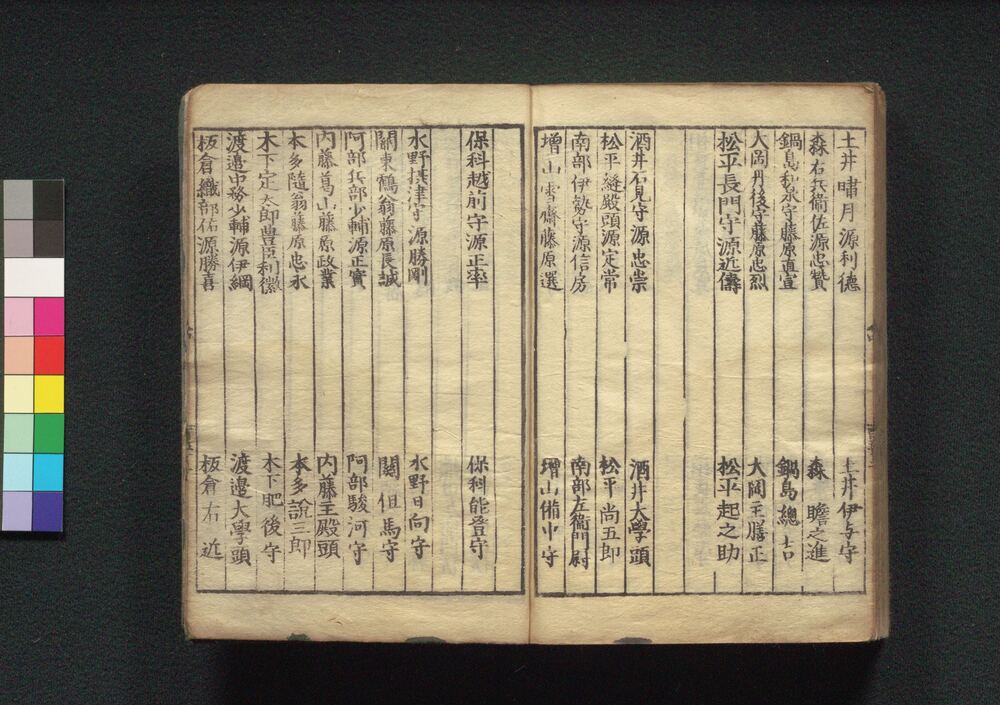 土井嘯月源利德
土井伊与守
森右兵衞佐源忠贊
森 瞻之進
鍋島和泉守藤原直宜
鍋島總吉
大岡丹後守藤原忠烈
大岡主膳正
松平長門守源近儔
松平起之助
酒井石見守源忠崇
酒井大學頭
松平縫殿頭源定常
松平尚五郎
南部伊勢守源信房
南部左衞門尉
增山雪齋藤原選
增山備中守
保科越前守源正率
保科能登守
水野摂津守源勝剛
水野日向守
關東鶴翁藤原長誠
關但馬守
阿部兵部少輔源正實
阿部駿河守
内藤葛山藤原政業
内藤主殿頭
本多隨翁藤原忠永
本多說三郎
木下定太郎豊臣利徽
木下肥後守
渡邉中務少輔源伊綱
渡邉大學頭
板倉織部佑源勝喜
板倉右近